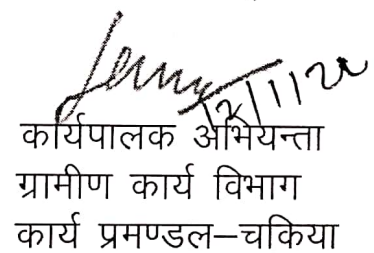 12/11/20
कार्यपालक अभियन्ता
ग्रामीण कार्य विभाग
कार्य प्रमण्डल–चकिया